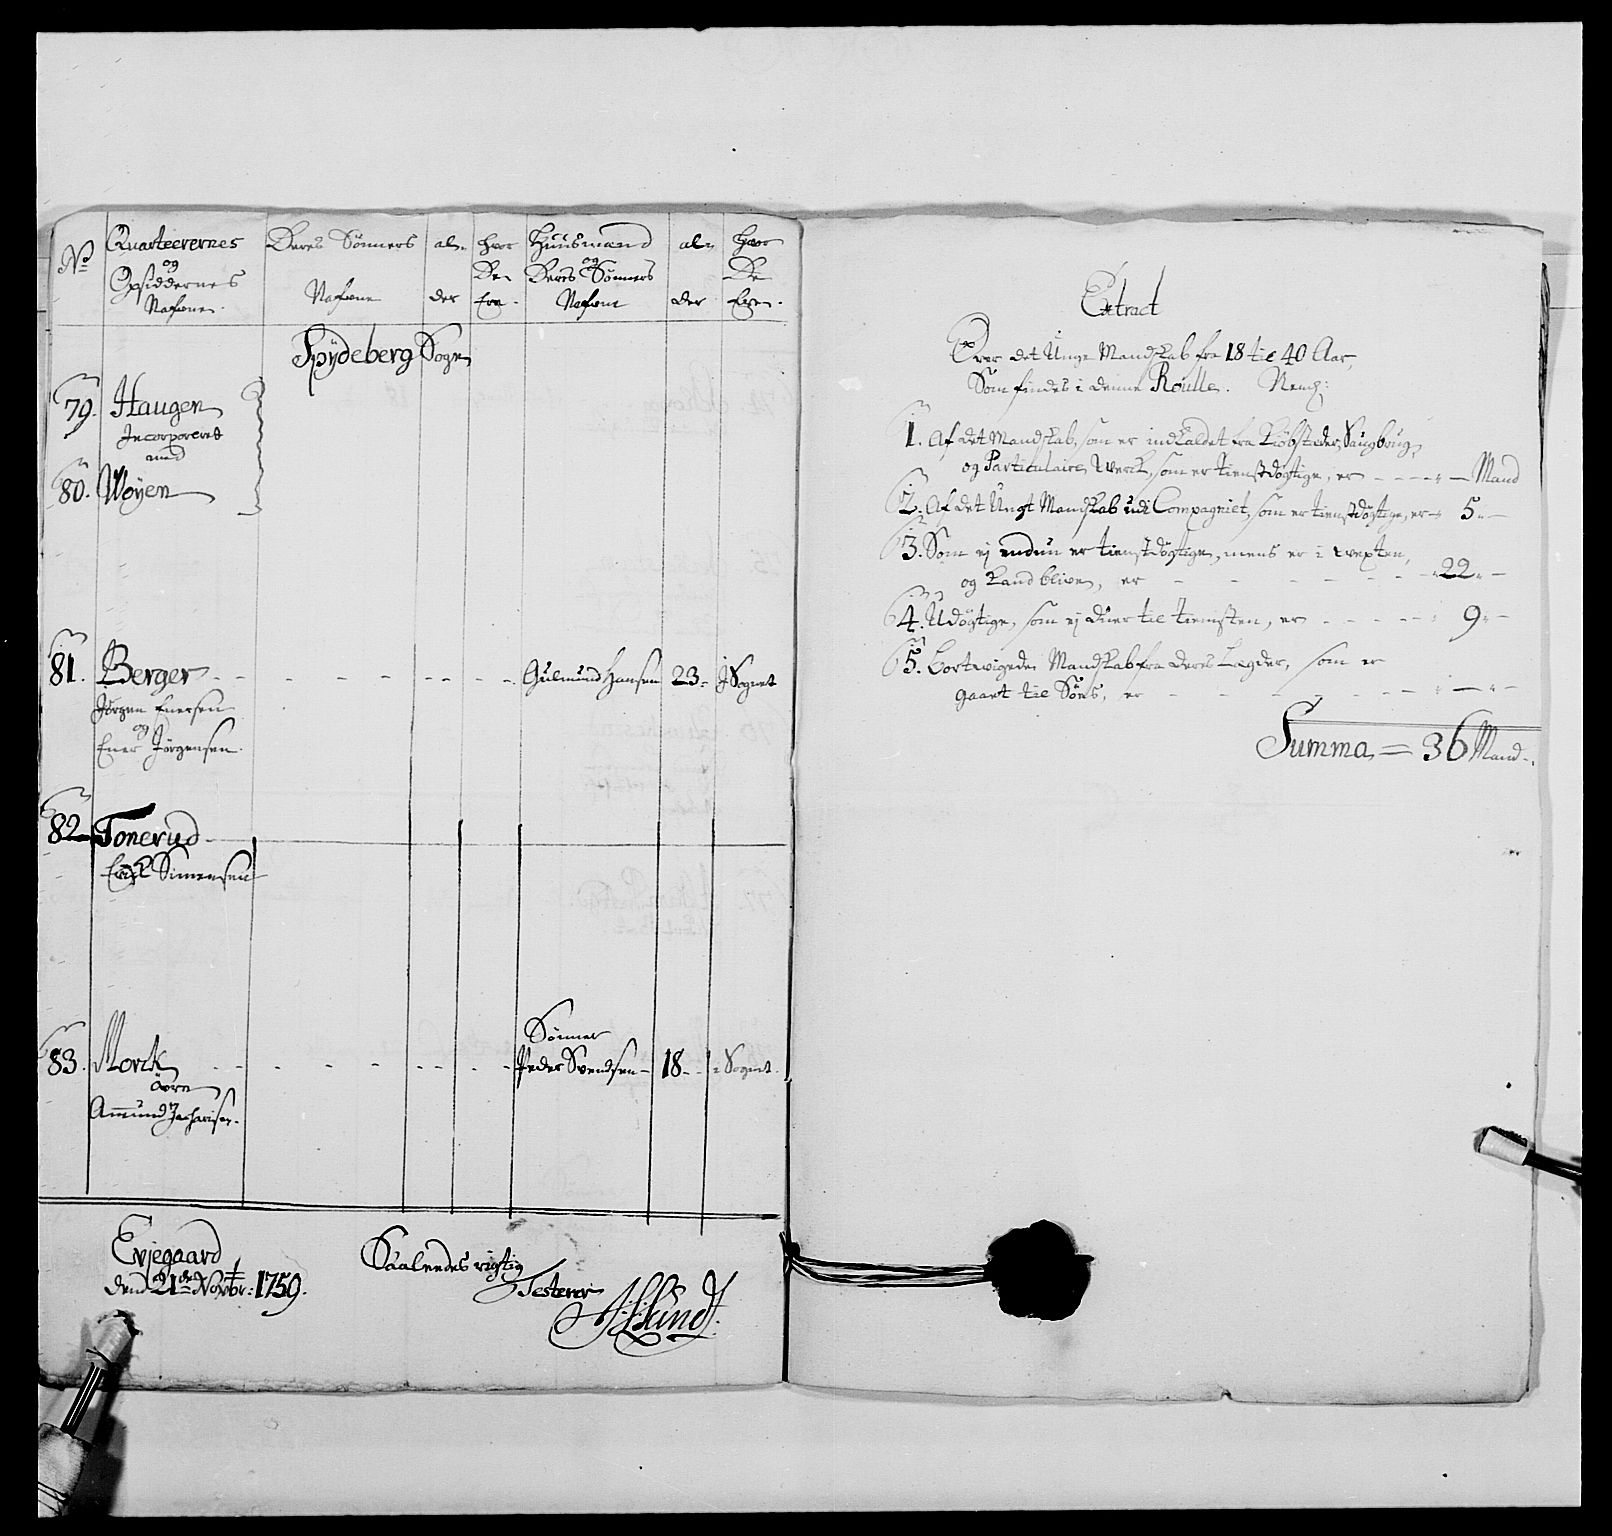 No
Quarteerernes
og
Opsiddernes
Nafwne.
Deres Sønners
Nafwne
al-
der
hvor
De
Ere.
Huusmænd
og
Deres Sønners
Nafwne
al-
der
hvor
De
Ere.
Spydeberg Sogn
79. Haugen
Incorporeret
med
80. Woyen
81. Berger - - - - - - - Gulmund Hansen 23 - j Sognet
Jørgen Enersen
og
Ener Jørgensen.
82 Tonerud
Simensen
Sønner
83. Morck - - - - - - - Peder Svendsen - 18 - i Sognet.
øvre
Amund Zacharisen.
Evjegaard
den 21de Novbr: 1759.
Saaledes rigtig
Testerer
Extract
Over det Unge Mandskab fra 18 til 40 Aar,
Som findes i denne Roulle. Neml:
1. Af det Mandskab, som er indkaldet fra Kiøbsteder, Saugbrug,
og Particulaire Werck, som er tienstdøgtige, er - - - - - Mand
2. Af det Ungt Mandskab udi Compagniet, som er tienstdøgtige, er - 5 -
3. Som ej endnu er tienstdøgtige, mens er i wexten,
og kand blive, er - - - - - - 22 -
4. Udøgtige, som ej duer til tienesten, er - - - - - 9 -
5. Bortwigede Mandskab fra deres Lægder, som er
gaaet til Søes, er - - - - - - -
Summa = 36 Mand.